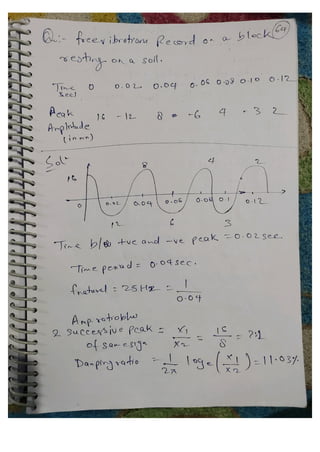 Qu:- free vibration Record on a block 69
resting on a soil.
Time 0 0.02 0.04 0.06 0.08 0.10 0.12
sec)
Peak 16 -12 8 -6 4 -3 2
Amplitude
(in mm)
Soln
16 8 4 2
0 0.02 0.04 0.06 0.08 0.1 0.12
12 6 3
Time b/w +ve and -ve peak = 0.02 sec.
Time period = 0.04 sec.
fnatural = 25 Hz = 1/0.04
Amp. ratio b/w
2 successive peak = x1/x2 = 16/8 = 2:1
of same sign
Damping ratio = 1/2π loge (x1/x2) = 11.03%